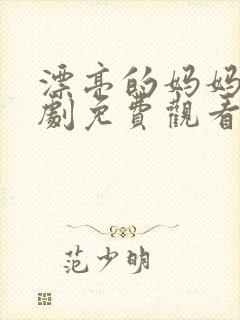 漂亮的妈妈
劇免費觀看
范少明